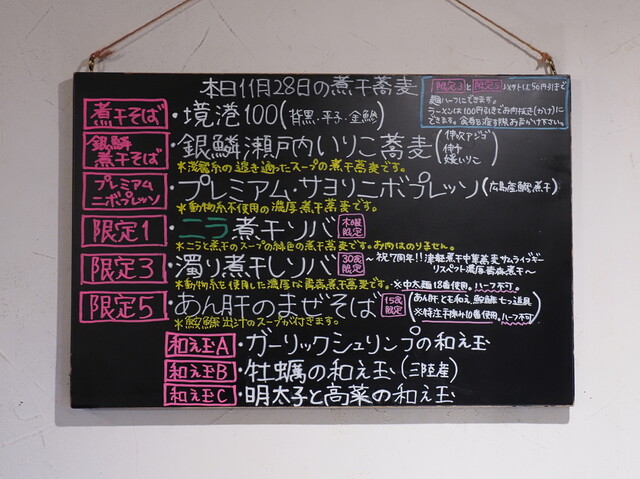 本日11月28日の煮干蕎麦
限定3と限定5以外は50円引きで
麺ハーフにできます。
ラーメンは100円引きでお肉抜き(かけ)に
できます。食券を渡す際お声かけ下さい。
煮干そば ・境港100(背黒・平子・金鯵)
銀鱗煮干そば ・銀鱗瀬戸内いりこ蕎麦
＊淡麗系の透き通ったスープの煮干蕎麦です。
プレミアムニボプレッソ ・プレミアム・サヨリニボプレッソ(広島産鱵煮干)
＊動物系不使用の濃厚煮干蕎麦です。
限定1 ・ニラ煮干ソバ 木曜限定
＊ニラと煮干のスープの緑色の煮干蕎麦です。お肉はのりません。
限定3 ・濁り煮干しソバ 30食限定 ～祝7周年!!津軽煮干中華蕎麦サムライブギー
リスペクト濃厚青森煮干～
＊動物系を使用した濃厚な青森煮干蕎麦です。・※中太麺18番使用。ハーフ不可。
限定5 ・あん肝のまぜそば 15食限定 (あん肝とも和え、
※特注手揉み10番使用。ハーフ不可)
＊鮟鱇出汁のスープが付きます。
和え玉A ・ガーリックシュリンプの和え玉
和え玉B ・牡蠣の和え玉(三陸産)
和え玉C ・明太子と高菜の和え玉